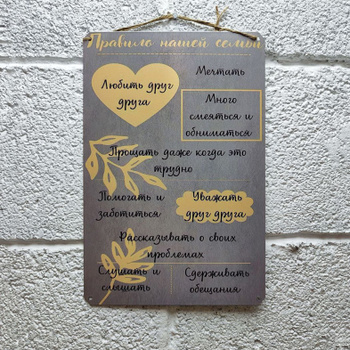 Правила нашей семьи
Любить друг
друга
Мечтать
Много
смеяться и
обниматься
Прощать даже когда это
трудно
Помогать и
заботиться
Уважать
друг друга
Рассказывать о своих
проблемах
Слушать и
слышать
Сдерживать
обещания